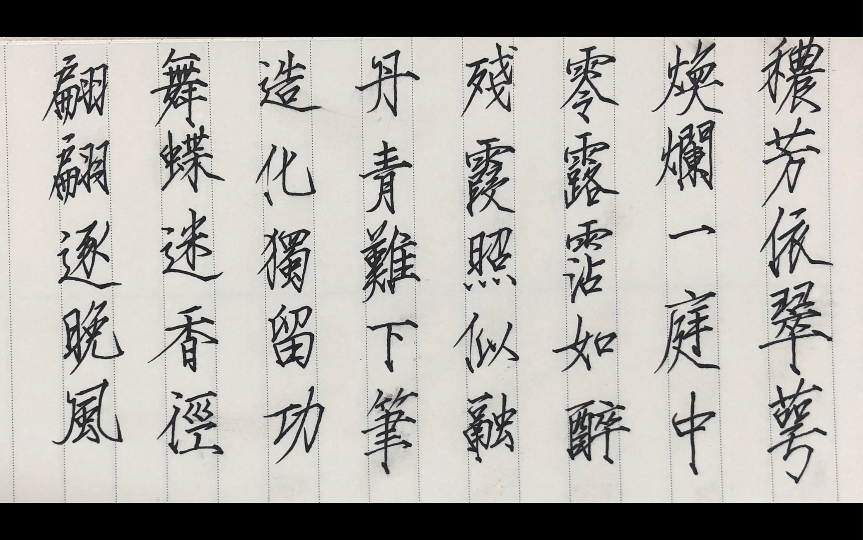 穠芳依翠萼
煥爛一庭中
零露霑如醉
殘霞照似融
丹青難下筆
造化獨留功
舞蝶迷香徑
翩翩逐晚風